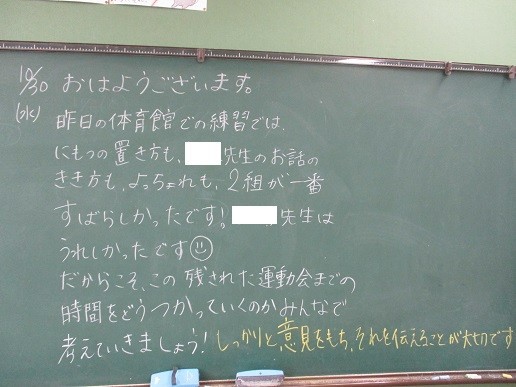 10/30 おはようございます。
(水) 昨日の体育館での練習では、
にもつの置き方も、先生のお話の
きき方も、よっちょれも、2組が一番
すばらしかったです!先生は
うれしかったです
だからこそ、この残された運動会までの
時間をどうつかっていくのかみんなで
考えていきましょう!しっかりと意見をもち、それを伝えることが大切です